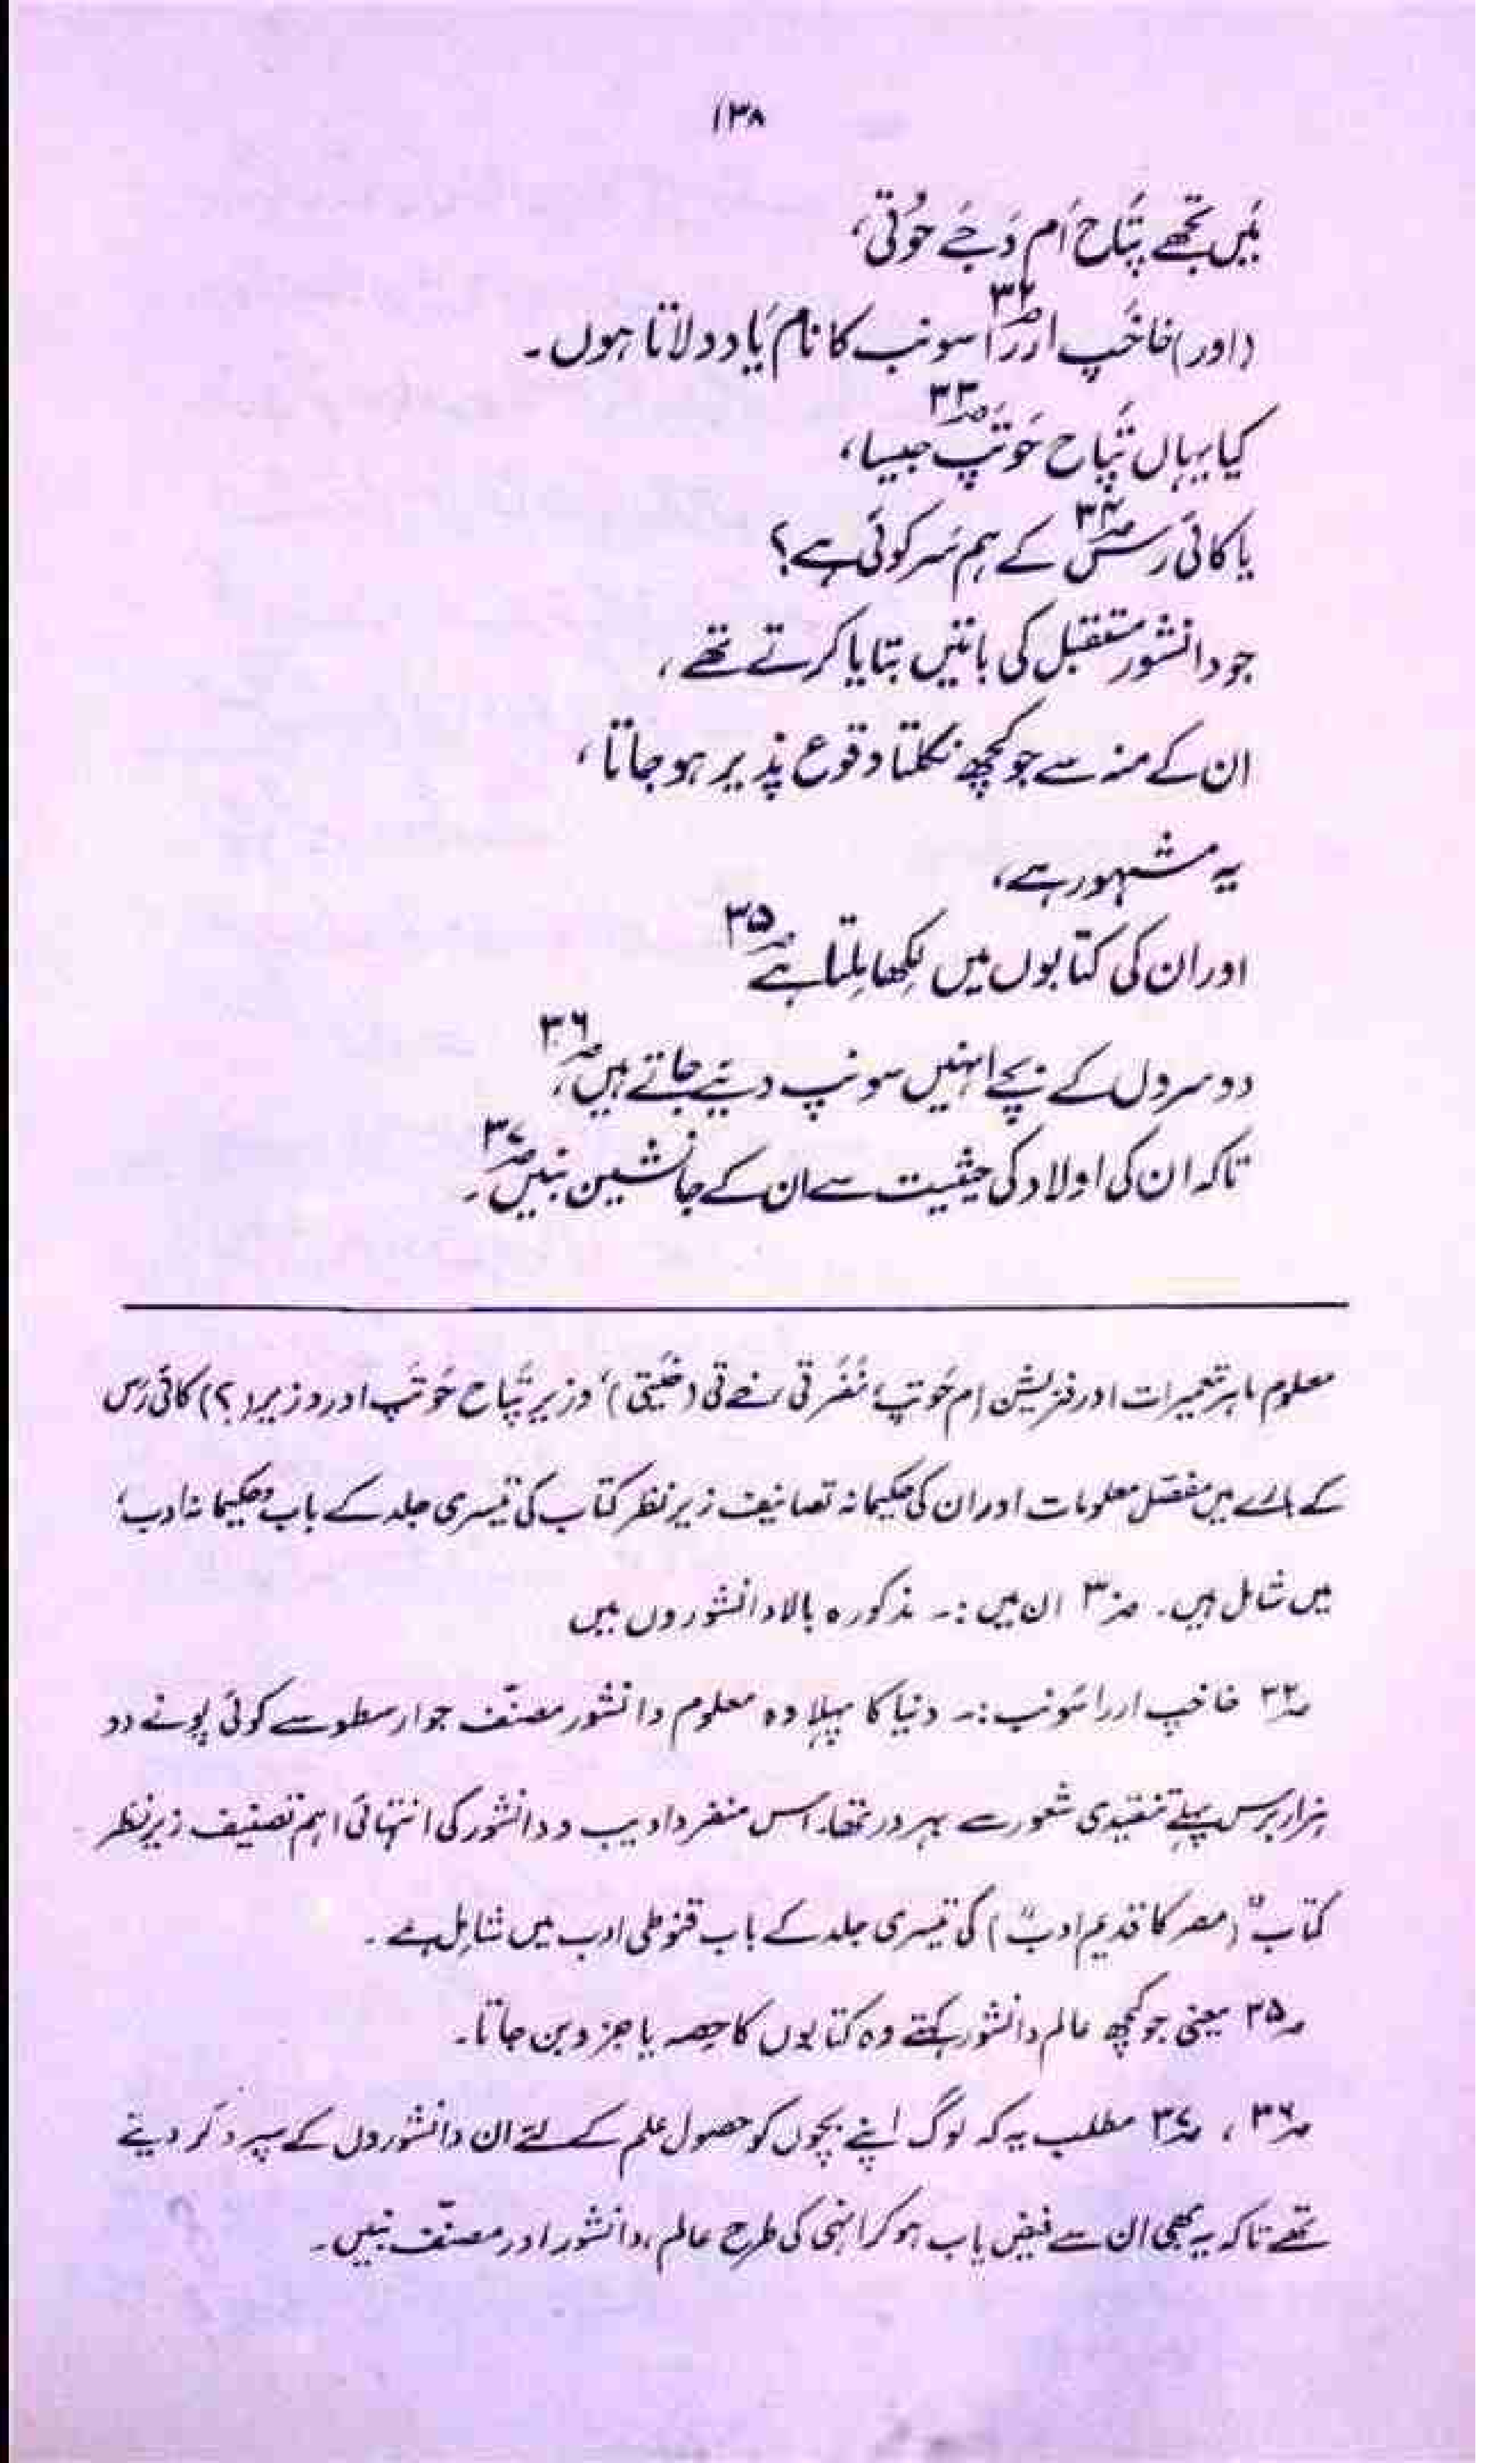 ۱۳۸
مَیں تجھے پتَاح اَم دَجے حوُتی،
(اور) خاخَپ اررَا سونب کا نام یَاد دلاتا ہوں۔ ۳۲
کیا یہاں پتَاح حَوتپَ جیسا، ۳۳
یا کائی رَس کے ہم سَر کوئی ہے؟ ۳۴
جو دانشور مستقبل کی باتیں بتایا کرتے تھے،
ان کے منہ سے جو کچھ نکلتا وقوع پذیر ہو جاتا،
یہ مشہور ہے،
اور ان کی کتابوں میں لِکھا مِلتا ہے ۳۵
دوسروں کے بچے انہیں سونپ دیئے جاتے ہیں، ۳۶
تاکہ ان کی اولاد کی حیثیت سے ان کے جانشین بنیں۔ ۳۷
معلوم ماہر تعمیرات اور فزیشن اِم حُوتپ، نُفَرتی نے تی (خیتی)، وزیر پتَاح حُوتپ اور وزیر (؟) کائی رَس
کے بارے میں مفصّل معلومات اور ان کی حکیمانہ تصانیف زیرِ نظر کتاب کی تیسری جلد کے باب "حکیمانہ ادب"
میں شامل ہیں۔ ۳ ان میں :۔ مذکورہ بالا دانشوروں میں
۳۲ خاخپ اررا سَونب :۔ دنیا کا پہلا وہ معلوم دانشور مصنّف جو ارسطو سے کوئی پونے دو
ہزار برس پہلے تنقیدی شعور سے بہرور تھا۔ اس منفرد ادیب و دانشور کی انتہائی اہم تصنیف زیرِ نظر
کتاب "(مصر کا قدیم ادب") کی تیسری جلد کے باب قنوطی ادب میں شامِل ہے۔
۳۵ یعنی جو کچھ عالم دانشور کہتے وہ کتابوں کا حصہ یا جزو بن جاتا۔
۳۶، ۳۷ مطلب یہ کہ لوگ اپنے بچوں کو حصولِ علم کے لئے ان دانشوروں کے سپرد کر دیتے
تھے تاکہ یہ بھی ان سے فیض یاب ہو کر انہی کی طرح عالم، دانشور اور مصنّف بنیں۔